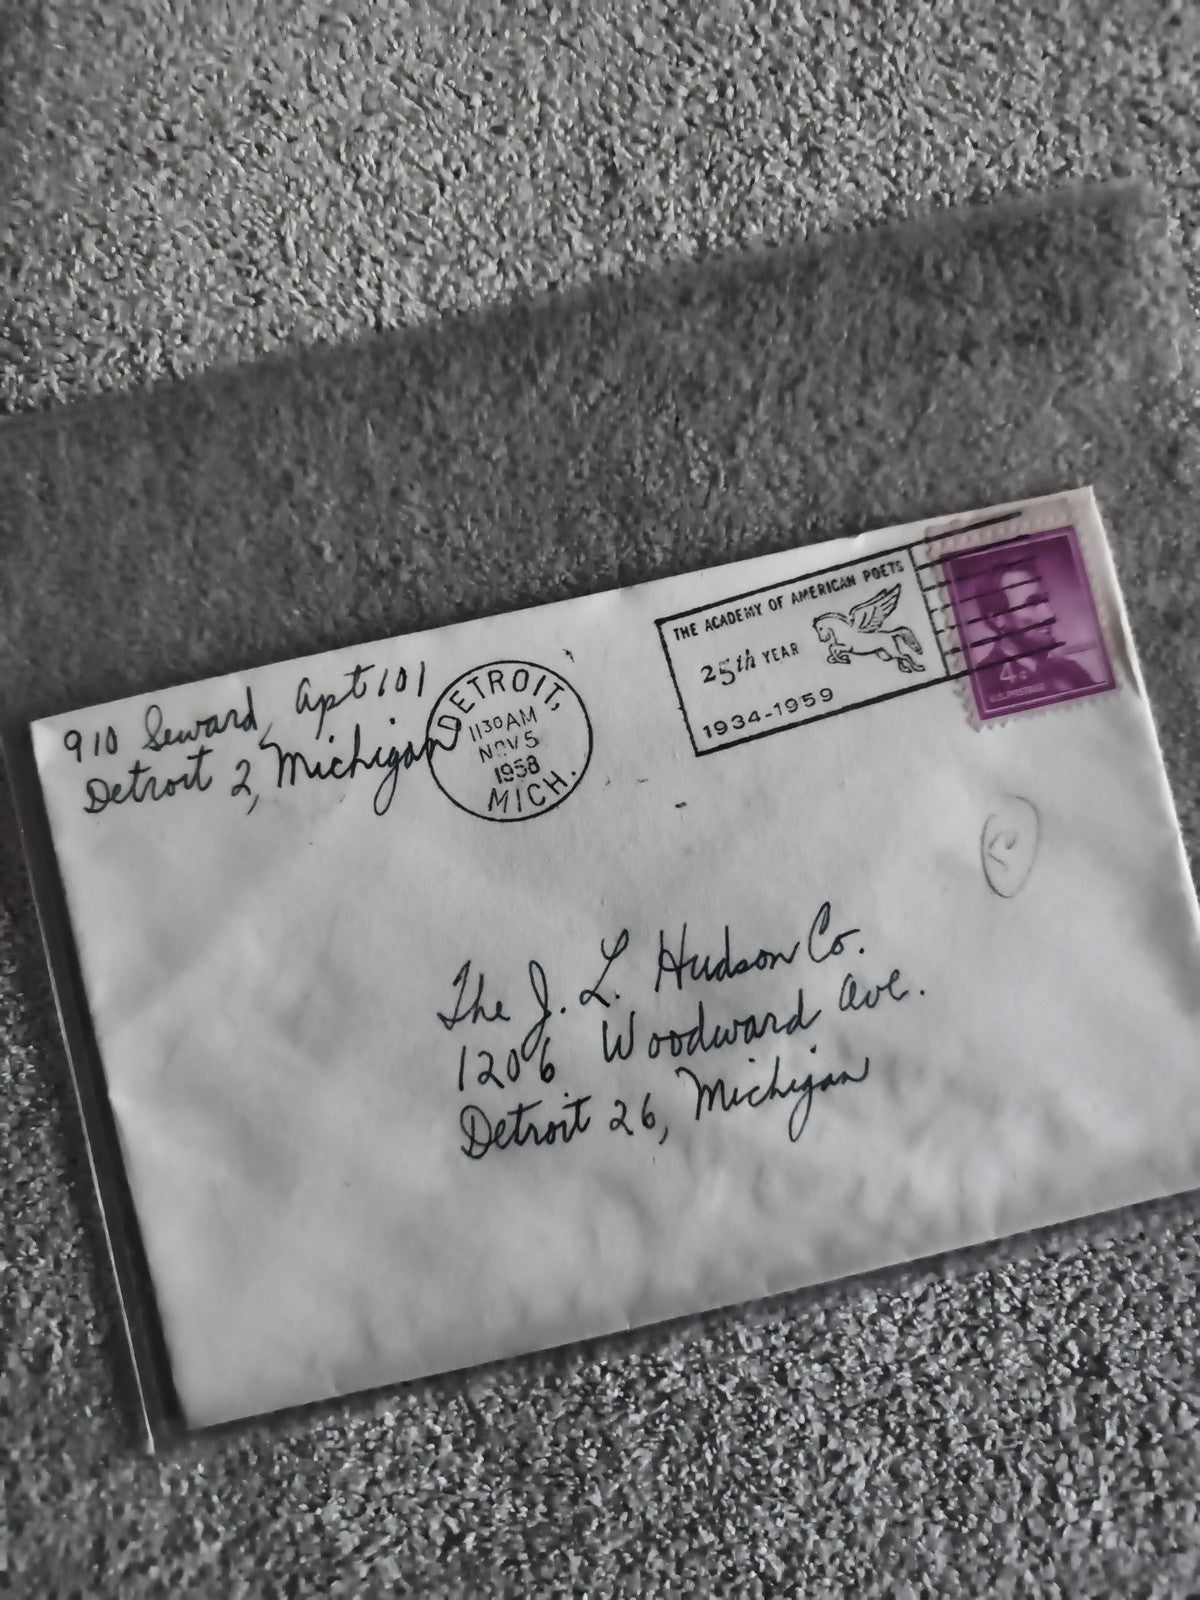 910 Seward, Apt 101
Detroit 2, Michigan
DETROIT,
1130AM
NOV5
1958
MICH.
THE ACADEMY OF AMERICAN POETS
25th YEAR
1934-1959
4¢
U.S. POSTAGE
The J. L. Hudson Co.
1206 Woodward Ave.
Detroit 26, Michigan